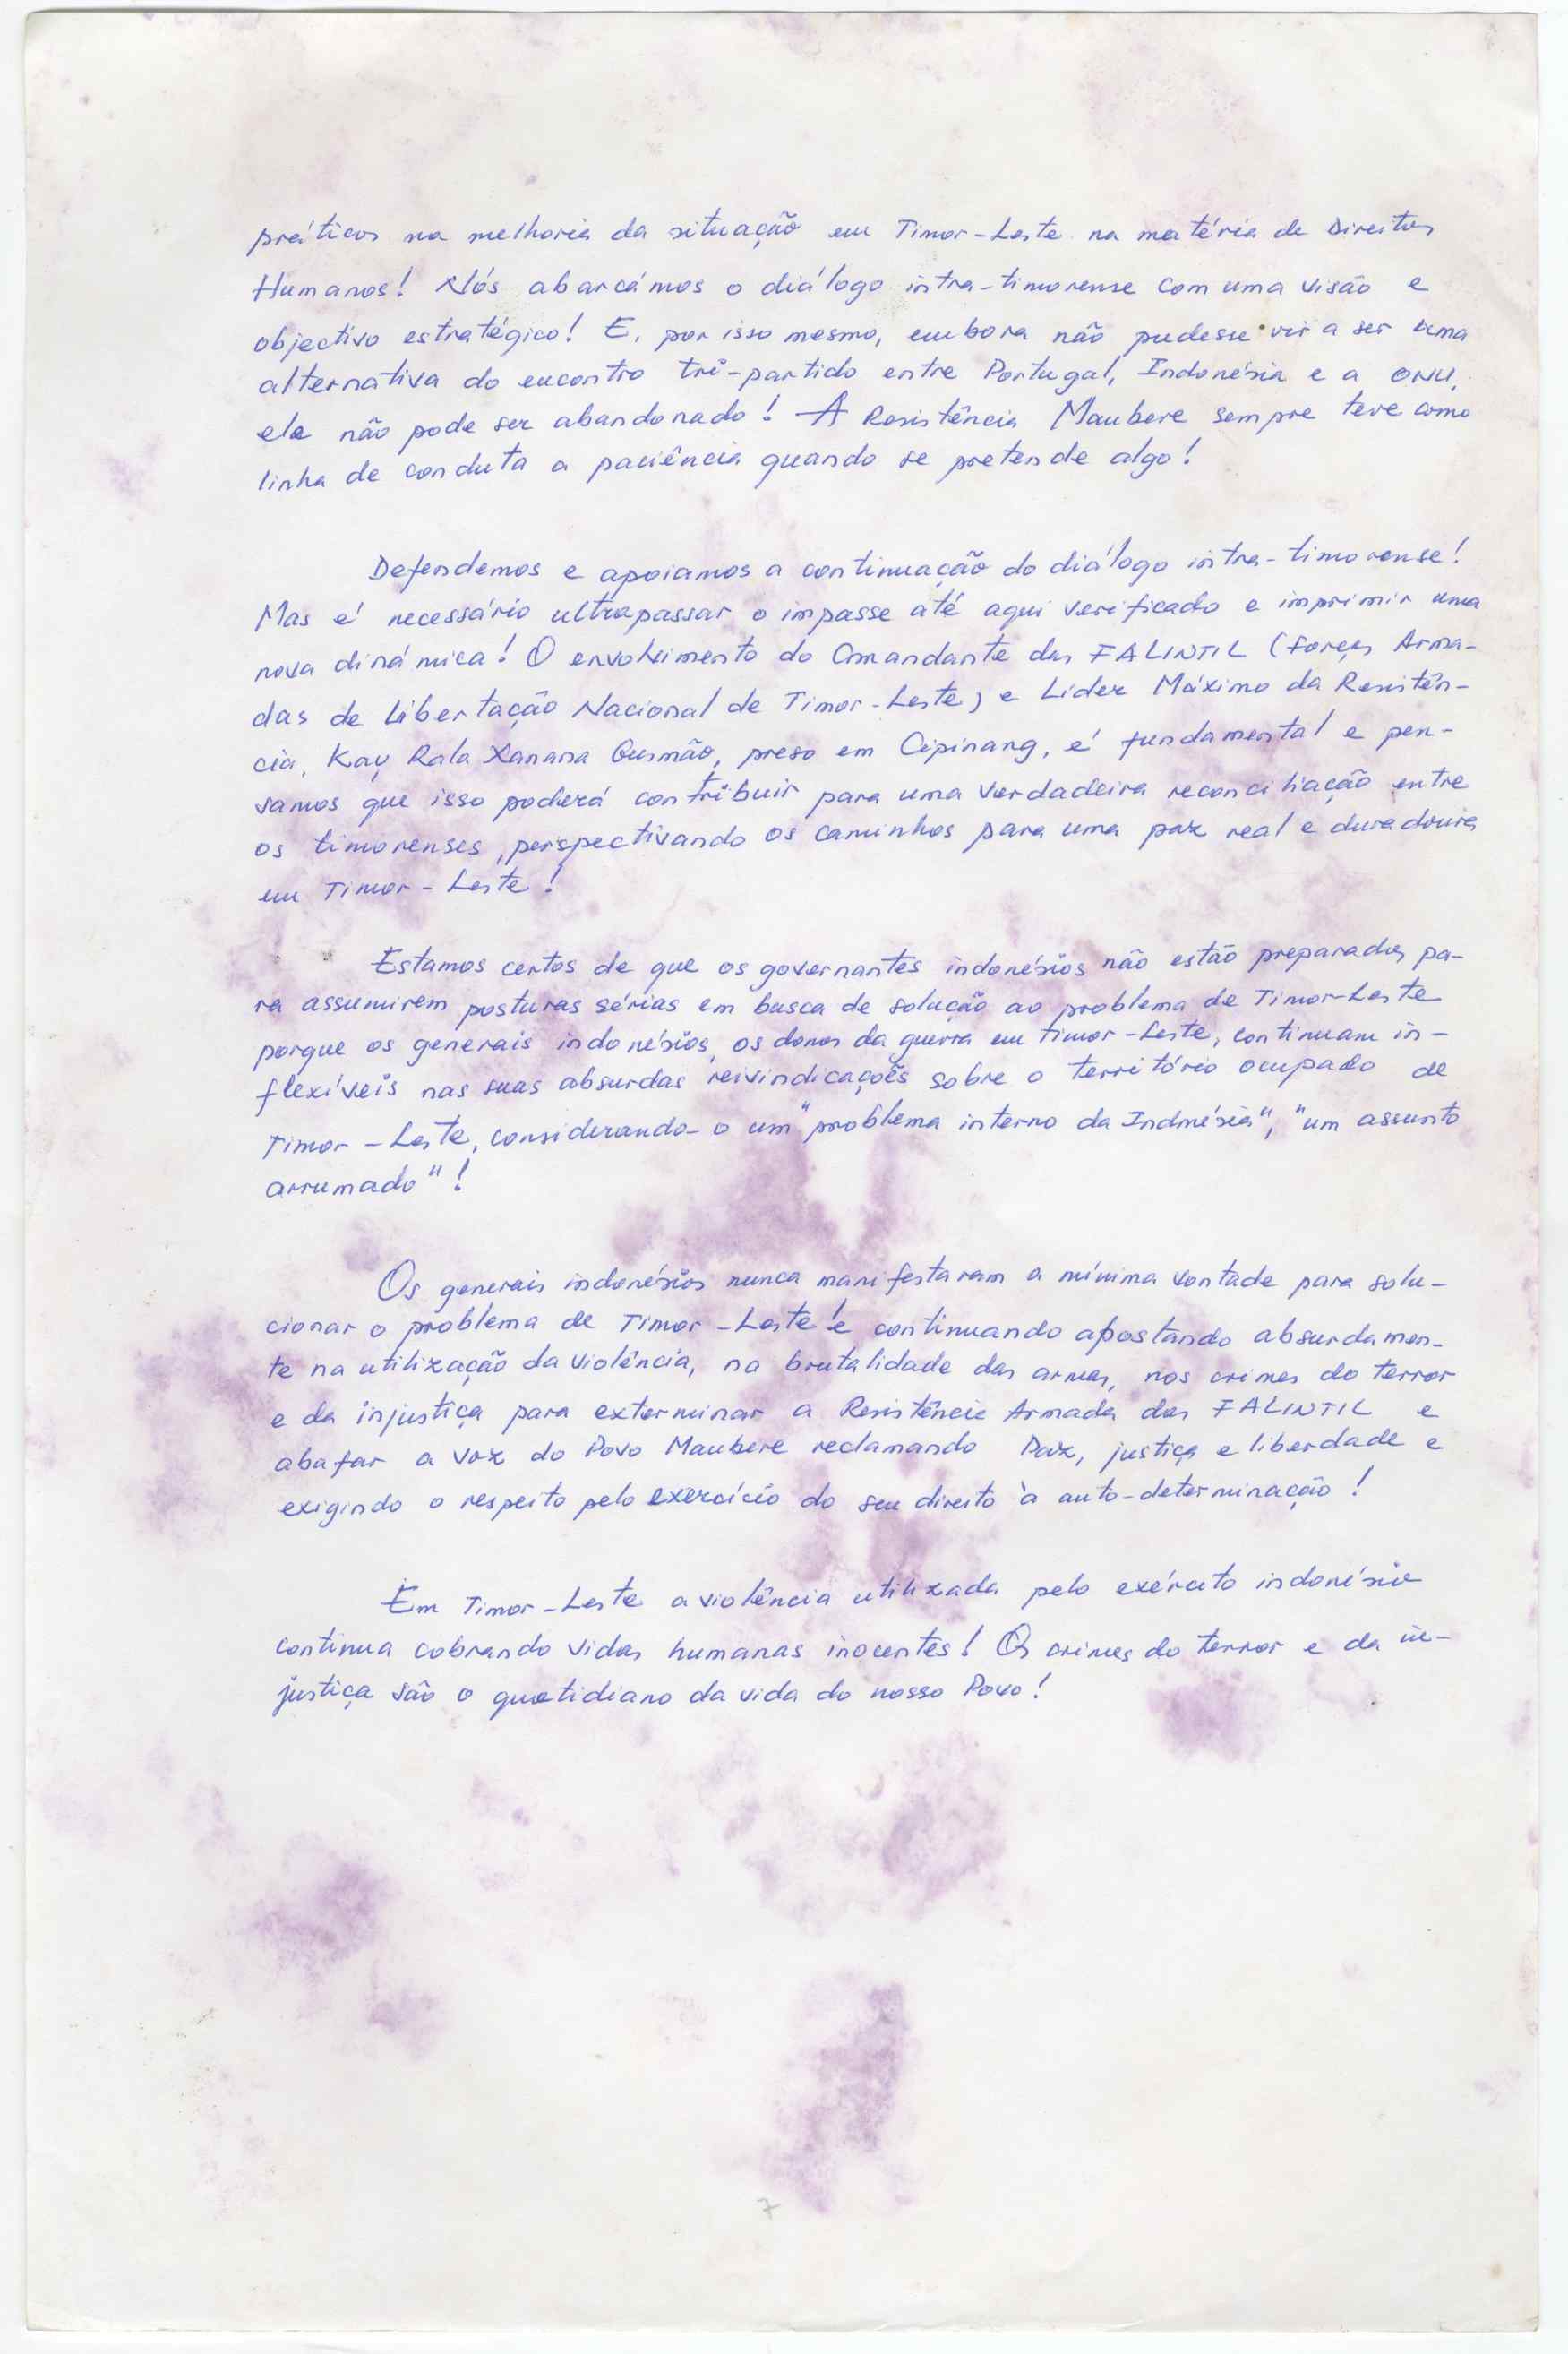 práticos na melhoria da situação em Timor-Leste na matéria de Direitos
Humanos! Nós abarcámos o diálogo intra-timorense com uma visão e
objectivo estratégico! E, por isso mesmo, embora não pudesse vir a ser uma
alternativa do encontro tri-partido entre Portugal, Indonésia e a ONU,
ele não pode ser abandonado! A Resistência Maubere sempre teve como
linha de conduta a paciência quando se pretende algo!
Defendemos e apoiamos a continuação do diálogo intra-timorense!
Mas é necessário ultrapassar o impasse até aqui verificado e imprimir uma
nova dinámica! O envolvimento do Comandante das FALINTIL (Forças Arma-
das de Libertação Nacional de Timor-Leste) e Lider Máximo da Resistên-
cia, Kay Rala Xanana Gusmão, preso em Cipinang, é fundamental e pen-
samos que isso poderá contribuir para uma verdadeira reconciliação entre
os timorenses, perspectivando os caminhos para uma paz real e duradoura
em Timor-Leste!
Estamos certos de que os governantes indonésios não estão preparados pa-
ra assumirem posturas sérias em busca de solução ao problema de Timor-Leste
porque os generais indonésios, os donos da guerra em Timor-Leste, continuam in-
flexíveis nas suas absurdas reivindicações sobre o território ocupado de
Timor-Leste, considerando-o um "problema interno da Indonésia", "um assunto
arrumado"!
Os generais indonésios nunca manifestaram a mínima vontade para solu-
cionar o problema de Timor-Leste! e continuando apostando absurdamen-
te na utilização da violência, na brutalidade das armas, nos crimes do terror
e da injustiça para exterminar a Resistência Armada das FALINTIL e
abafar a voz do Povo Maubere reclamando Paz, justiça e liberdade e
exigindo o respeito pelo exercício do seu direito à auto-determinação!
Em Timor-Leste a violência utilizada pelo exército indonésio
continua cobrando vidas humanas inocentes! Os crimes do terror e da in-
justiça são o quotidiano da vida do nosso Povo!
7